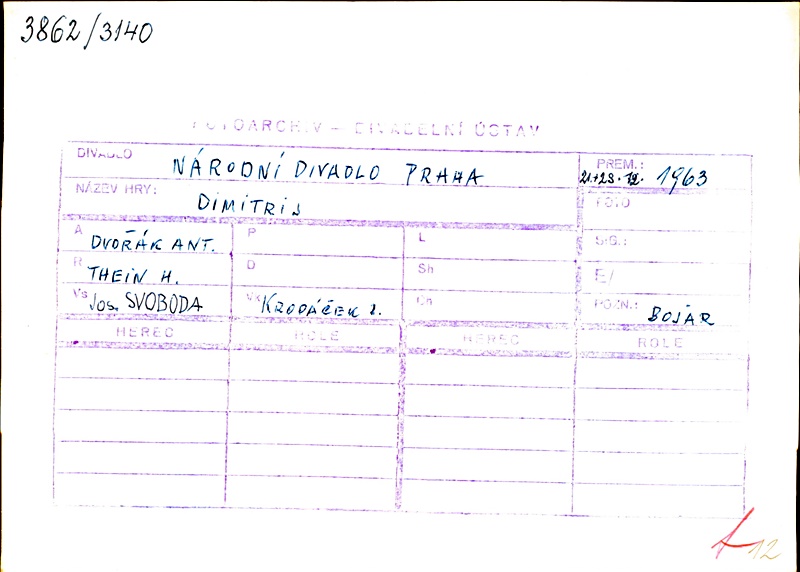 3862/3140
FOTOARCHIV – DIVADELNÍ ÚSTAV
DIVADLO NÁRODNÍ DIVADLO PRAHA
PREM.: 21.+23. 12. 1963
NÁZEV HRY: DIMITRIJ
FOTO
A DVOŘÁK ANT.
P
L
SIG.:
R THEIN H.
D
Sh
E/
Vs Jos. SVOBODA
Vk KROPÁČEK J.
Ch
POZN.: BOJAR
HEREC ROLE HEREC ROLE
12